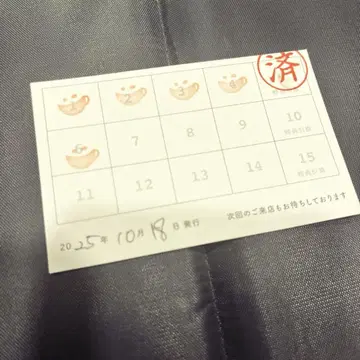 1 2 3 4 済
6 7 8 9 10
特典引換
11 12 13 14 15
特典引換
2025年10月18日発行
次回のご来店もお待ちしております